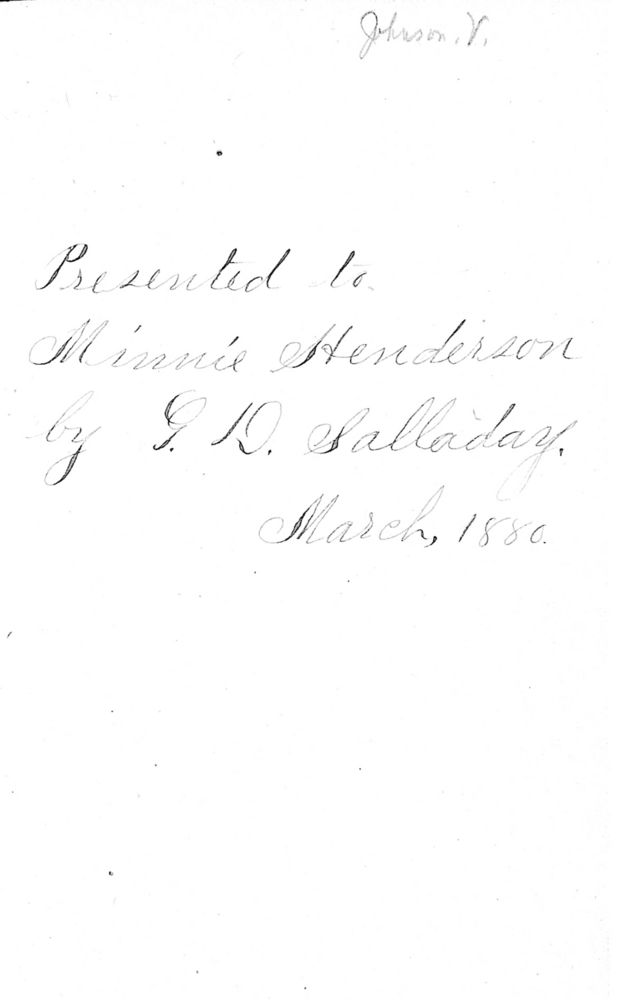 Johnson. V.
Presented to
Minnie Henderson
by G. D. Salladay.
March, 1880.